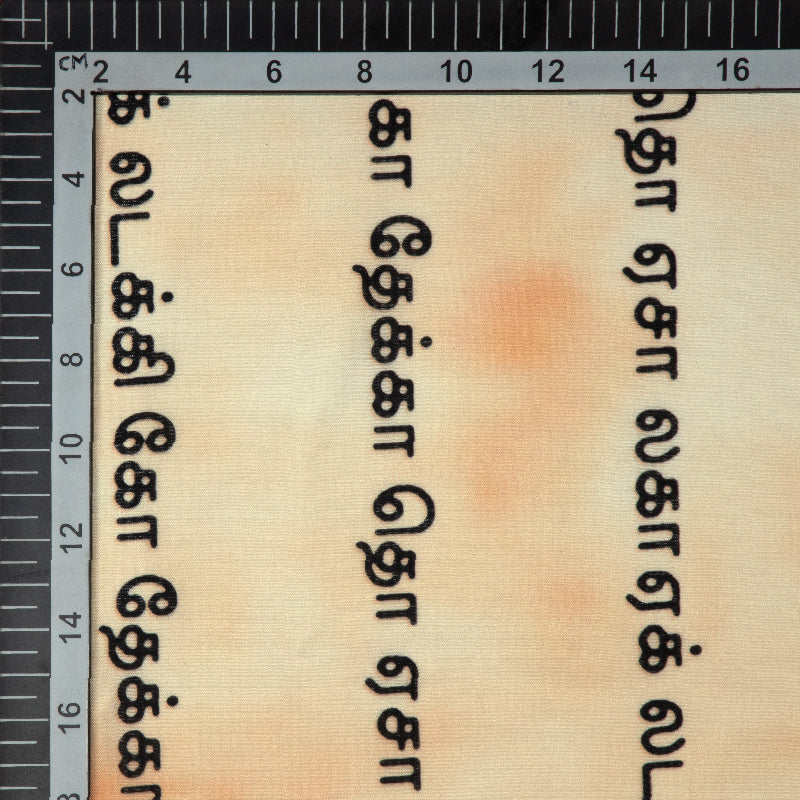 CM 2 4 6 8 10 12 14 16
2 4 6 8 10 12 14 16
தொ ஏசா லகாஏக் லட
கா தேக்கா தொ ஏசா
க் லடக்கி கோ தேக்கா